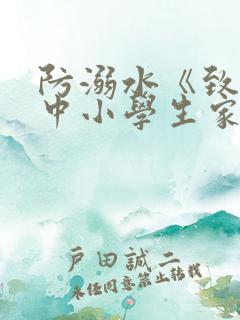 防溺水《致
中小學生家
戸田誠二
未经同意禁止转载